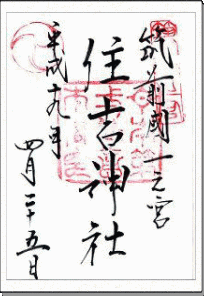 筑前國一之宮
住吉神社
平成十九年
四月二十五日